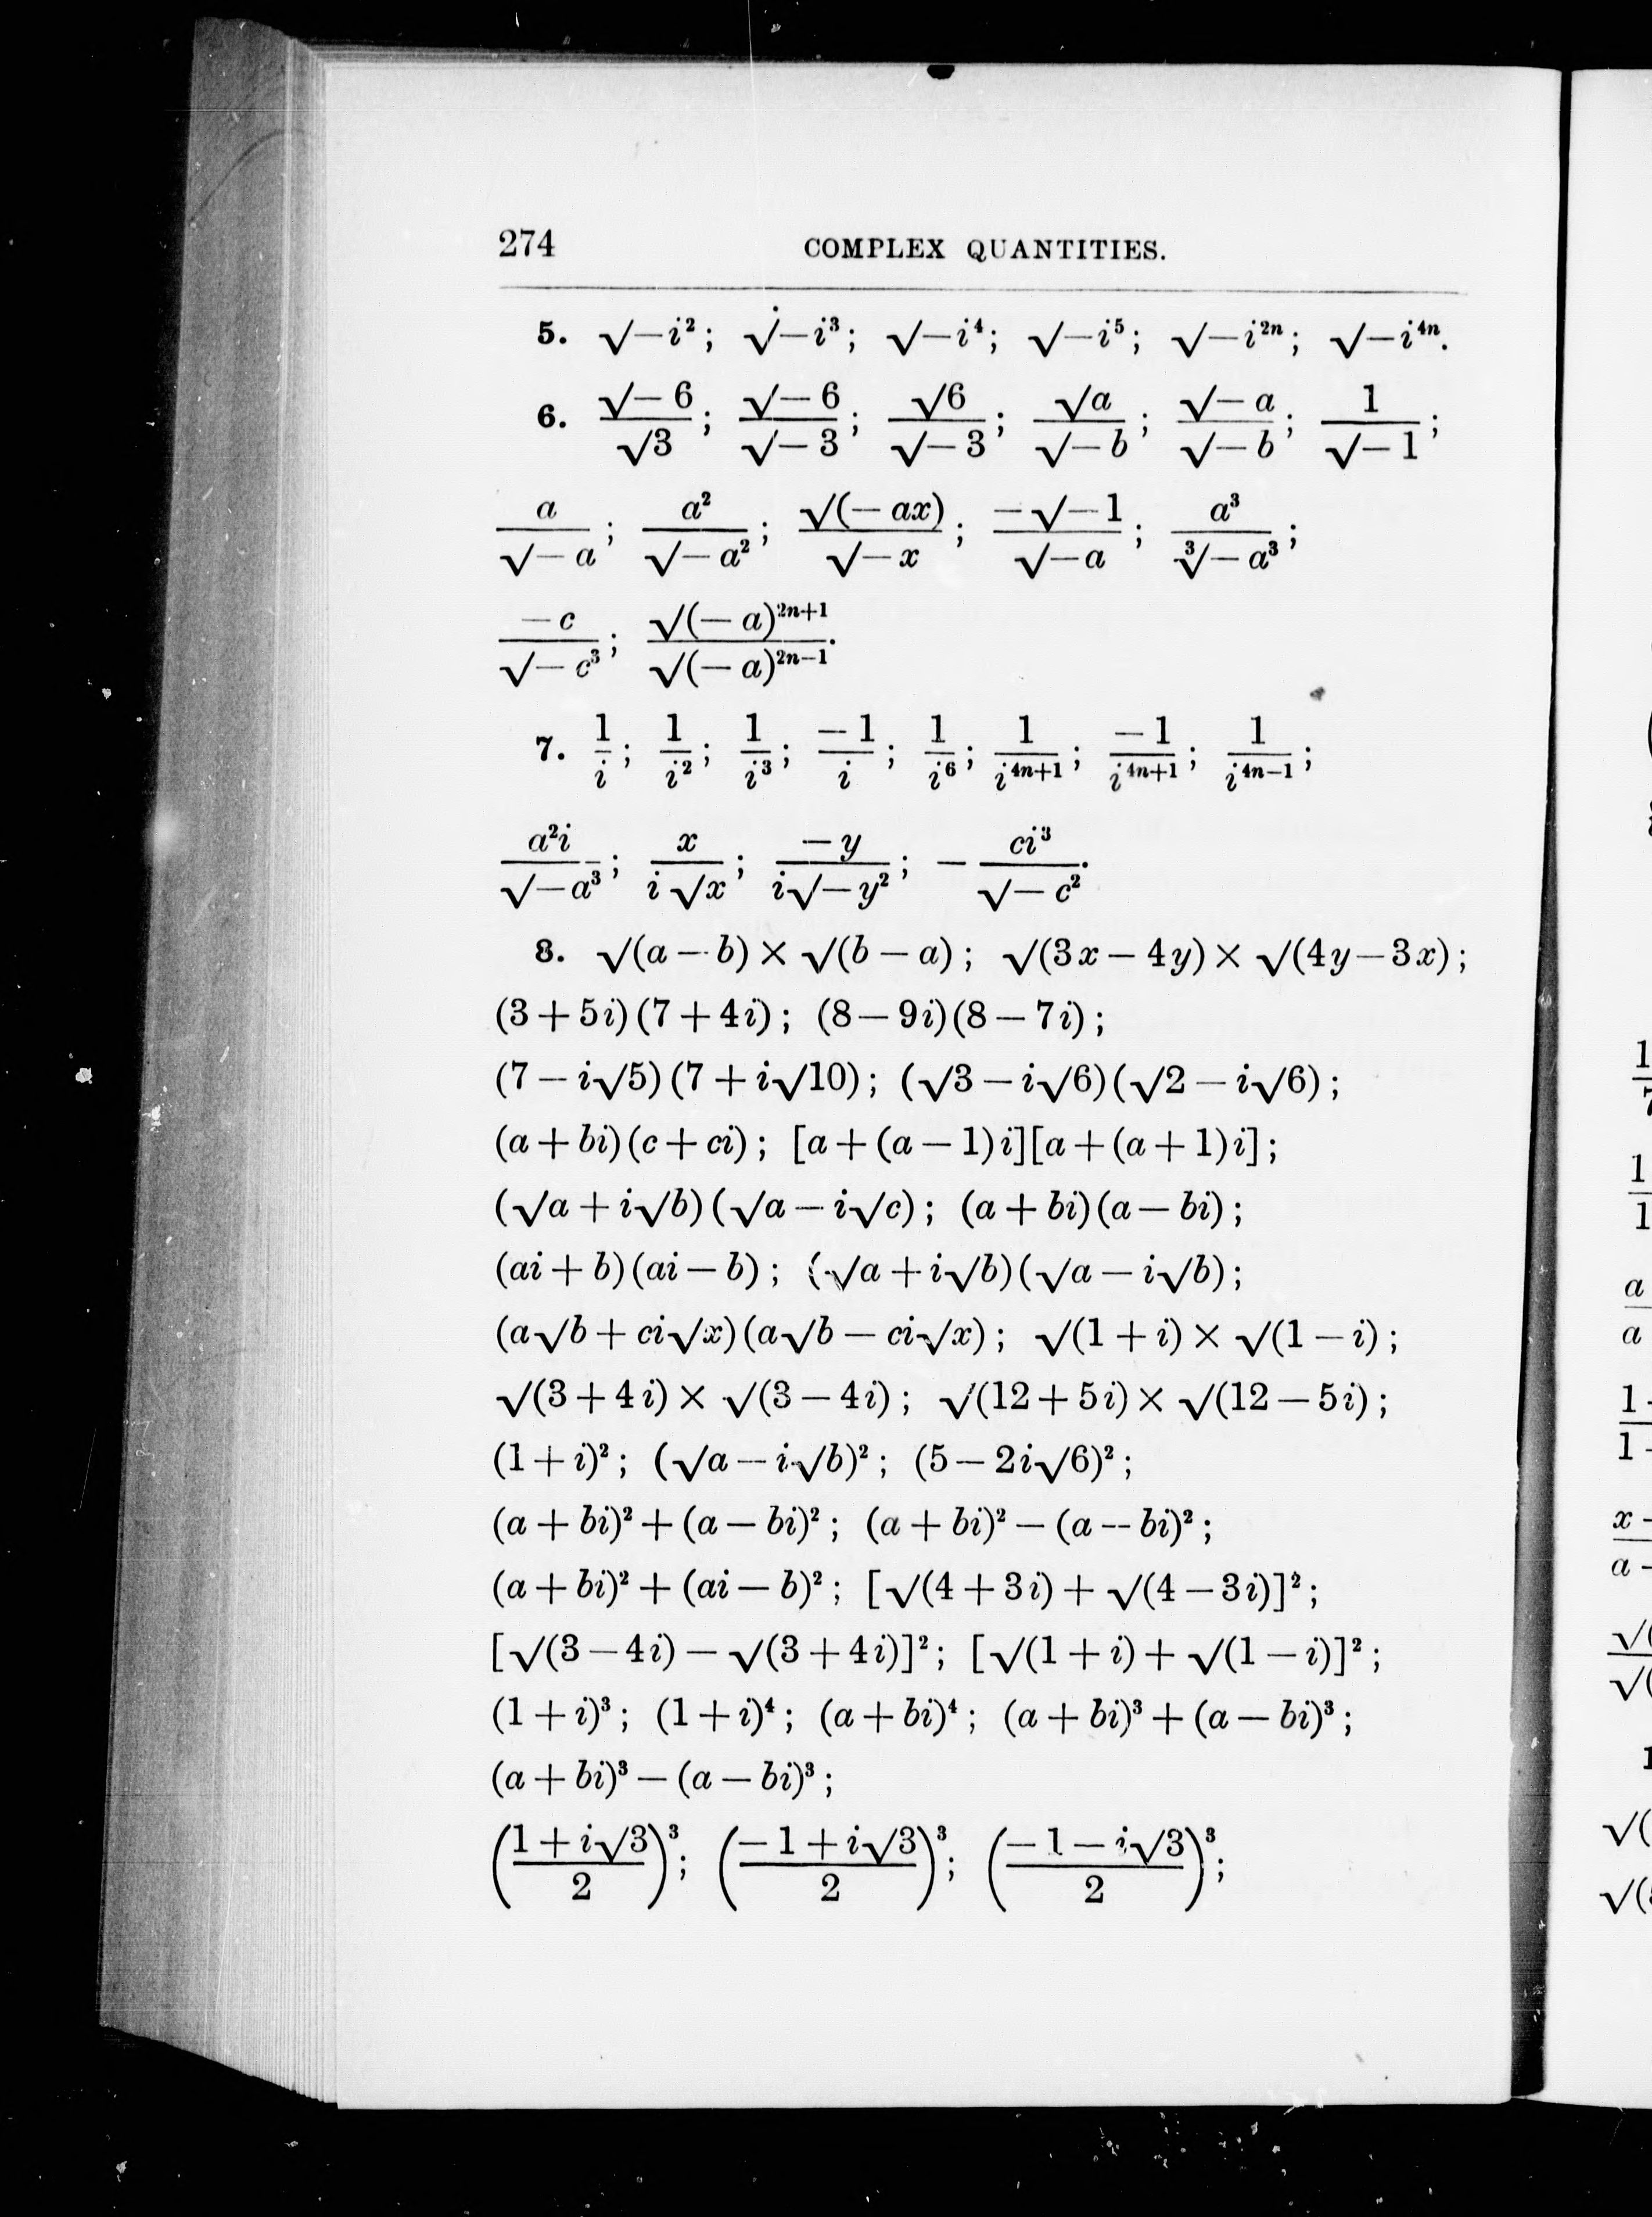 274 COMPLEX QUANTITIES.
5. √−i²; √−i³; √−i⁴; √−i⁵; √−i²ⁿ; √−i⁴ⁿ.
6. √−6/√3; √−6/√−3; √6/√−3; √a/√−b; √−a/√−b; 1/√−1;
a/√−a; a²/√−a²; √(−ax)/√−x; −√−1/√−a; a³/∛−a³;
−c/√−c³; √(−a)²ⁿ⁺¹/√(−a)²ⁿ⁻¹.
7. 1/i; 1/i²; 1/i³; −1/i; 1/i⁶; 1/i⁴ⁿ⁺¹; −1/i⁴ⁿ⁺¹; 1/i⁴ⁿ⁻¹;
a²i/√−a³; x/i√x; −y/i√−y²; −ci³/√−c².
8. √(a−b)×√(b−a); √(3x−4y)×√(4y−3x);
(3+5i)(7+4i); (8−9i)(8−7i);
(7−i√5)(7+i√10); (√3−i√6)(√2−i√6);
(a+bi)(c+ci); [a+(a−1)i][a+(a+1)i];
(√a+i√b)(√a−i√c); (a+bi)(a−bi);
(ai+b)(ai−b); (√a+i√b)(√a−i√b);
(a√b+ci√x)(a√b−ci√x); √(1+i)×√(1−i);
√(3+4i)×√(3−4i); √(12+5i)×√(12−5i);
(1+i)²; (√a−i√b)²; (5−2i√6)²;
(a+bi)²+(a−bi)²; (a+bi)²−(a−bi)²;
(a+bi)²+(ai−b)²; [√(4+3i)+√(4−3i)]²;
[√(3−4i)−√(3+4i)]²; [√(1+i)+√(1−i)]²;
(1+i)³; (1+i)⁴; (a+bi)⁴; (a+bi)³+(a−bi)³;
(a+bi)³−(a−bi)³;
((1+i√3)/2)³; ((−1+i√3)/2)³; ((−1−i√3)/2)³;